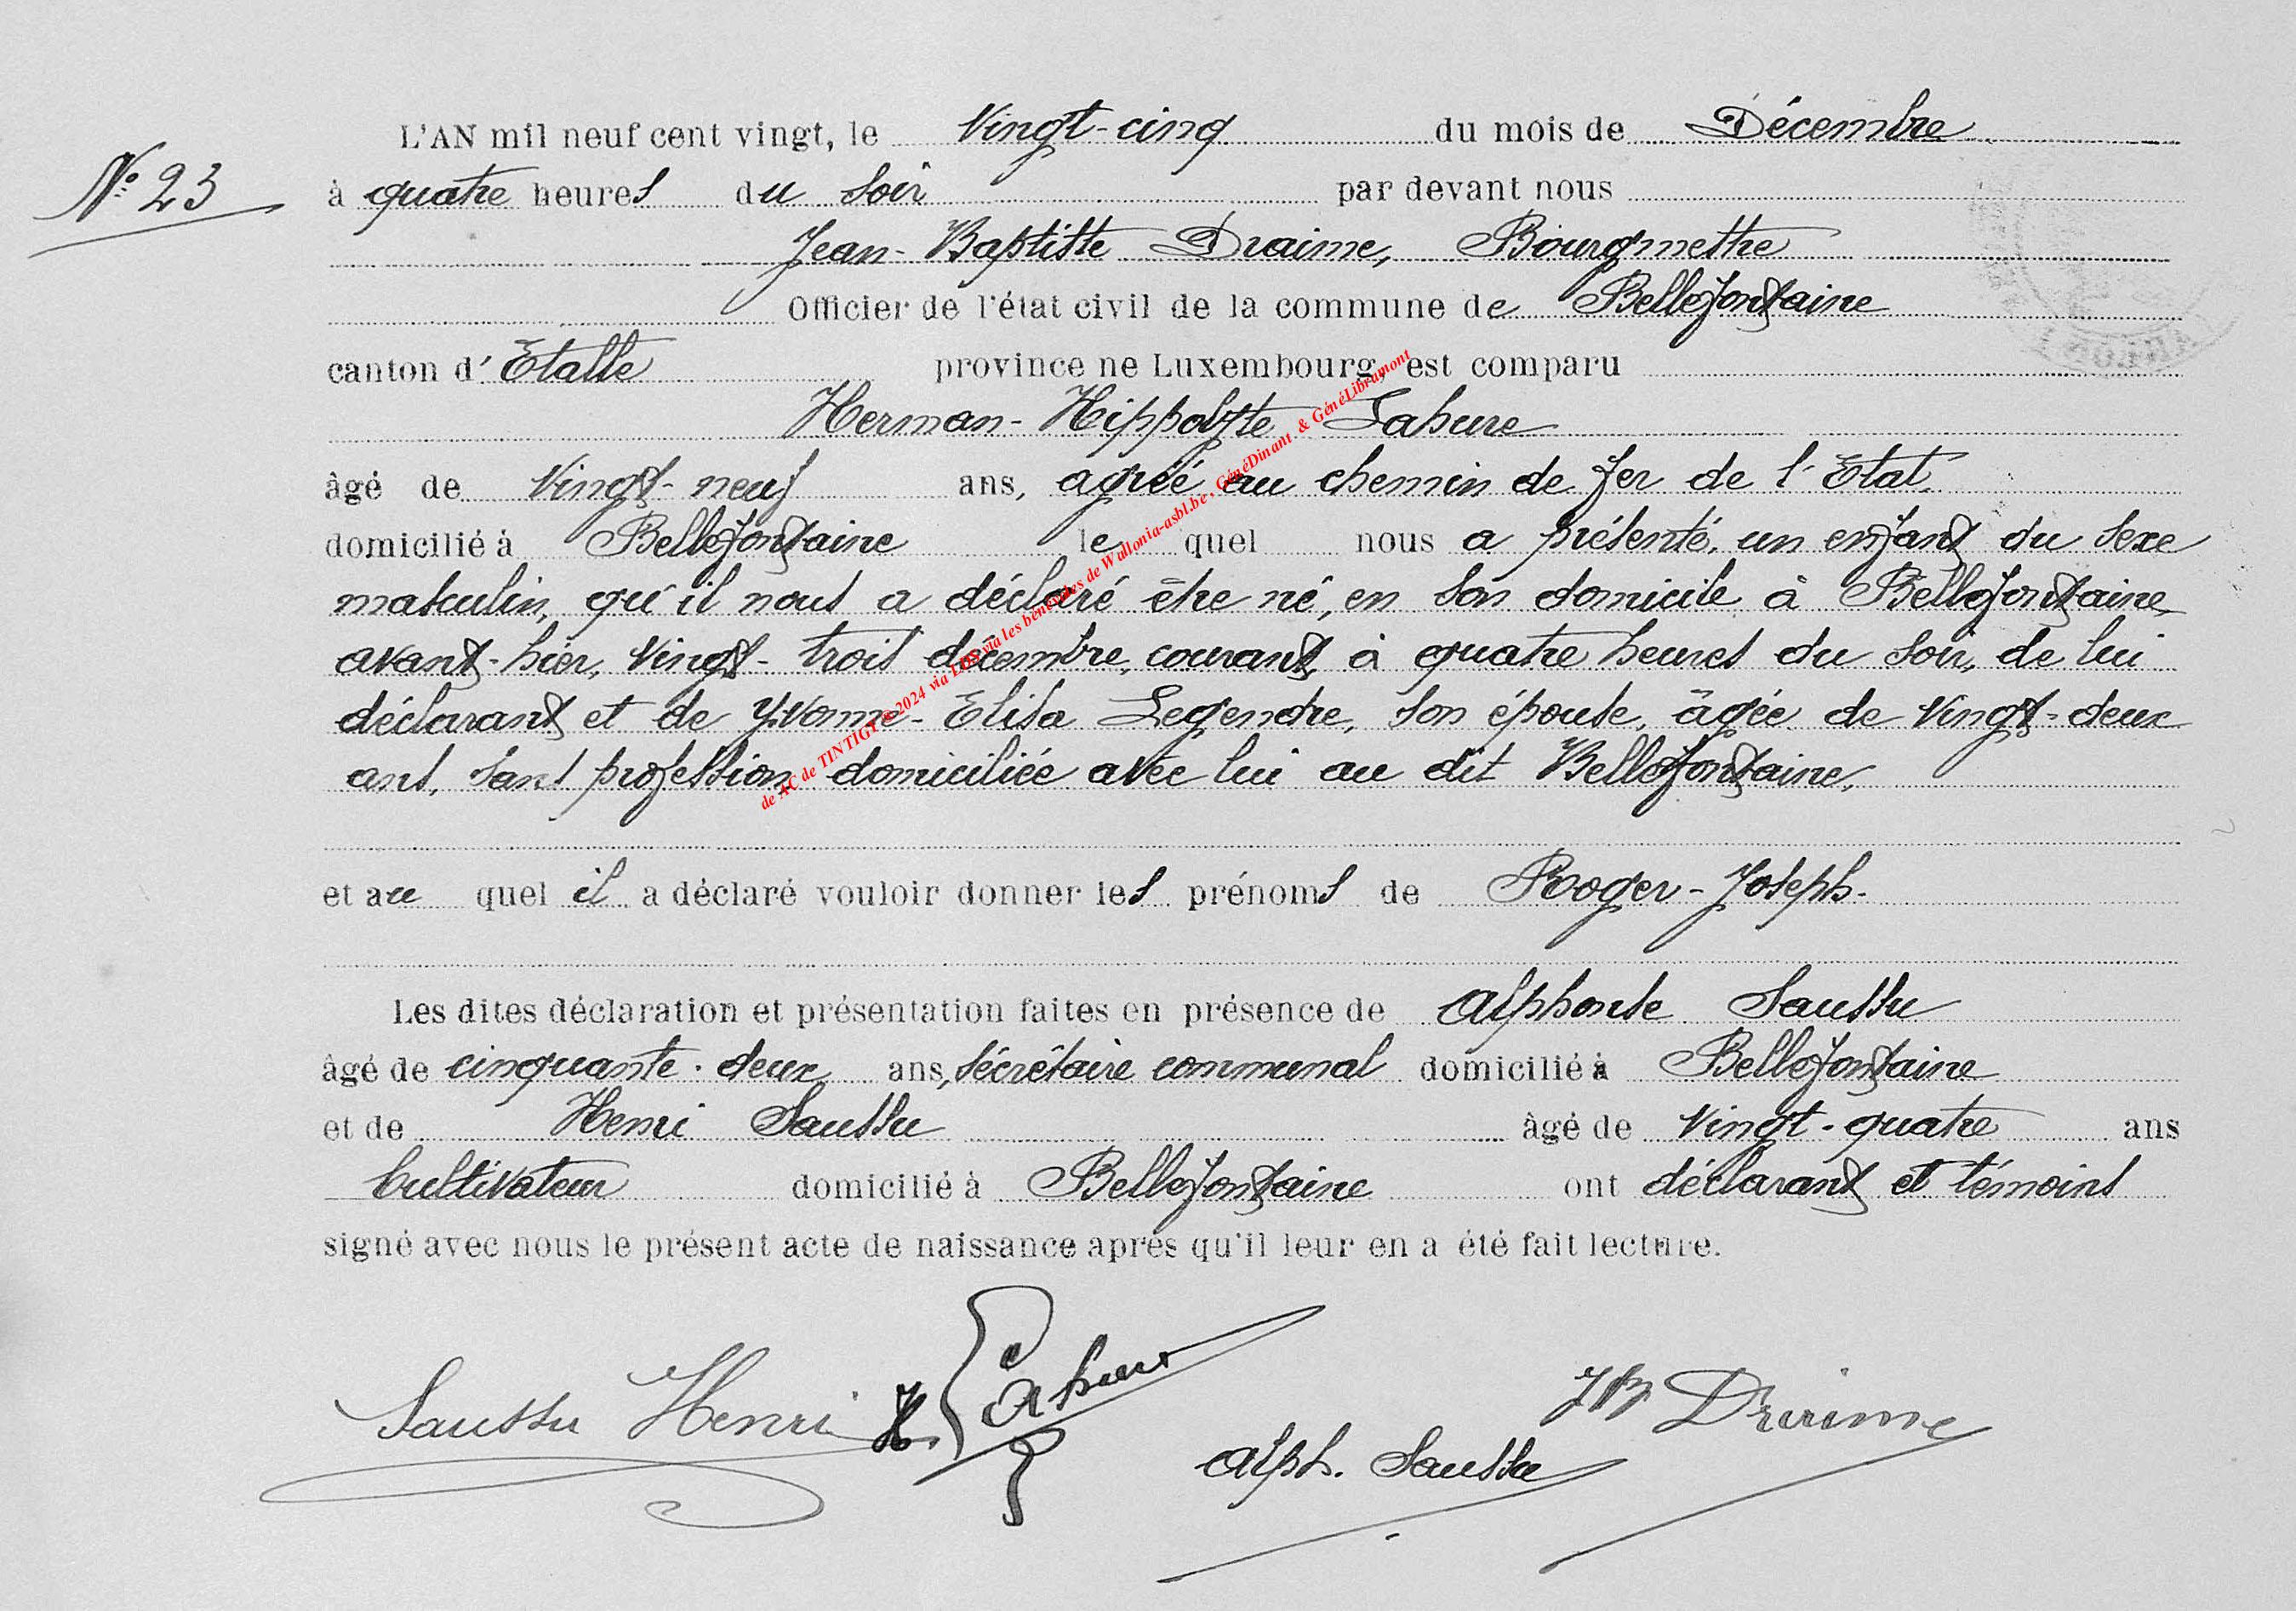 L'AN mil neuf cent vingt, le Vingt-cinq du mois de Décembre
N° 23
à quatre heures du soir par devant nous
Jean-Baptiste Draime, Bourgmestre
Officier de l'état civil de la commune de Bellefontaine
canton d'Etalle province de Luxembourg, est comparu
Herman-Hippolyte Lahure
âgé de Vingt-neuf ans, agréé au chemin de fer de l'Etat
domicilié à Bellefontaine le quel nous a présenté, un enfant du sexe
masculin, qu'il nous a déclaré être né, en son domicile à Bellefontaine
avant-hier, Vingt-trois décembre, courant, à quatre heures du soir, de lui
déclarant et de Yvonne-Elisa Legendre, son épouse, âgée de Vingt-deux
ans, sans profession domiciliée avec lui au dit Bellefontaine,
et au quel il a déclaré vouloir donner les prénoms de Roger-Joseph.
Les dites déclaration et présentation faites en présence de Alphonse Saussu
âgé de cinquante-deux ans, sécrétaire communal domicilié à Bellefontaine
et de Henri Saussu âgé de Vingt-quatre ans
Cultivateur domicilié à Bellefontaine ont déclarant et témoins
signé avec nous le présent acte de naissance après qu'il leur en a été fait lecture.
Saussu Henri H Lahure JB Draime
Alph. Saussu
de AC de TINTIGY © 2024 via LDS via les bénévoles de Wallonia-asbl.be, GénéDinant & GénéLibramont